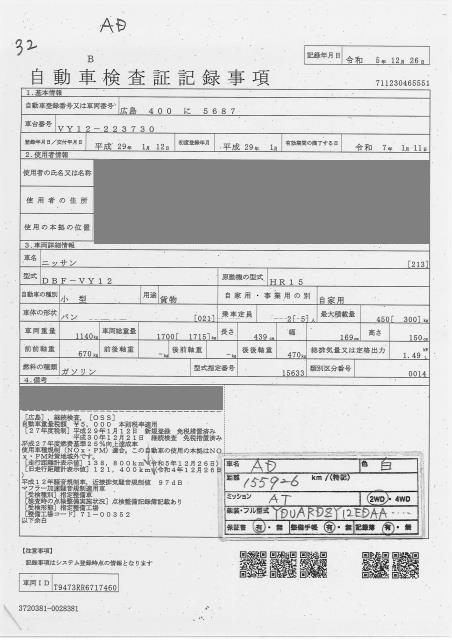 AD
32
B
記録年月日 令和 5年 12月 26日
自動車検査証記録事項
711230465551
1.基本情報
自動車登録番号又は車両番号 広島 400 に 5687
車台番号 VY12-223730
登録年月日/交付年月日 平成 29年 1月 12日 初度登録年月 平成 29年 1月 有効期間の満了する日 令和 7年 1月 11日
2.使用者情報
使用者の氏名又は名称
使用者の住所
使用の本拠の位置
3.車両詳細情報
車名 ニッサン [213]
型式 DBF-VY12 原動機の型式 HR15
自動車の種別 小型 用途 貨物 自家用・事業用の別 自家用
車体の形状 バン [021] 乗車定員 2[ 5]人 最大積載量 450[ 300]kg
車両重量 1140kg 車両総重量 1700[ 1715]kg 長さ 439cm 幅 169cm 高さ 150cm
前前軸重 670kg 前後軸重 -kg 後前軸重 -kg 後後軸重 470kg 総排気量又は定格出力 1.49 L
燃料の種類 ガソリン 型式指定番号 15633 類別区分番号 0014
4.備考
[広島],継続検査,[OSS]
自動車重量税額 ¥5,000 本則税率適用
[27年度税制]平成29年1月12日 新規登録 免税措置済み
平成30年12月21日 継続検査 免税措置済み
平成27年度燃費基準25%向上達成車
使用車種規制(NOx・PM)適合,この自動車の使用の本拠はNO
x・PM対策地域外です。
[走行距離計表示値]138,800km(令和5年12月26日)
[旧走行距離計表示値]121,400km(令和4年12月26日
)
平成12年騒音規制車,近接排気騒音規制値 97dB
マフラー加速騒音規制適用車
[受検種別]指定整備車
[検査時の点検整備実施状況]点検整備記録簿記載あり
[受検形態]指定整備工場
[整備工場コード]71-00352
以下余白
車名 AD 色 白
距離 155926 km/(特記)
ミッション AT 2WD・4WD
保証書 有・無 整備手帳 有・無 記録簿 有・無
【注意事項】
記録事項はシステム登録時点の情報となります
車両ID T9473RR6717460
3720381-0028381